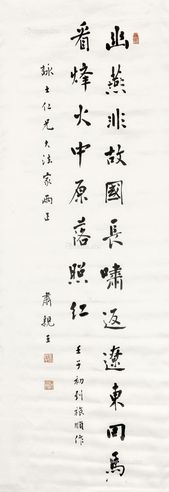 幽燕非故國長嘯返遼東回馬
看烽火中原落照紅
壬子初到旅順作
詠士仁兄大法家兩正
肅親王